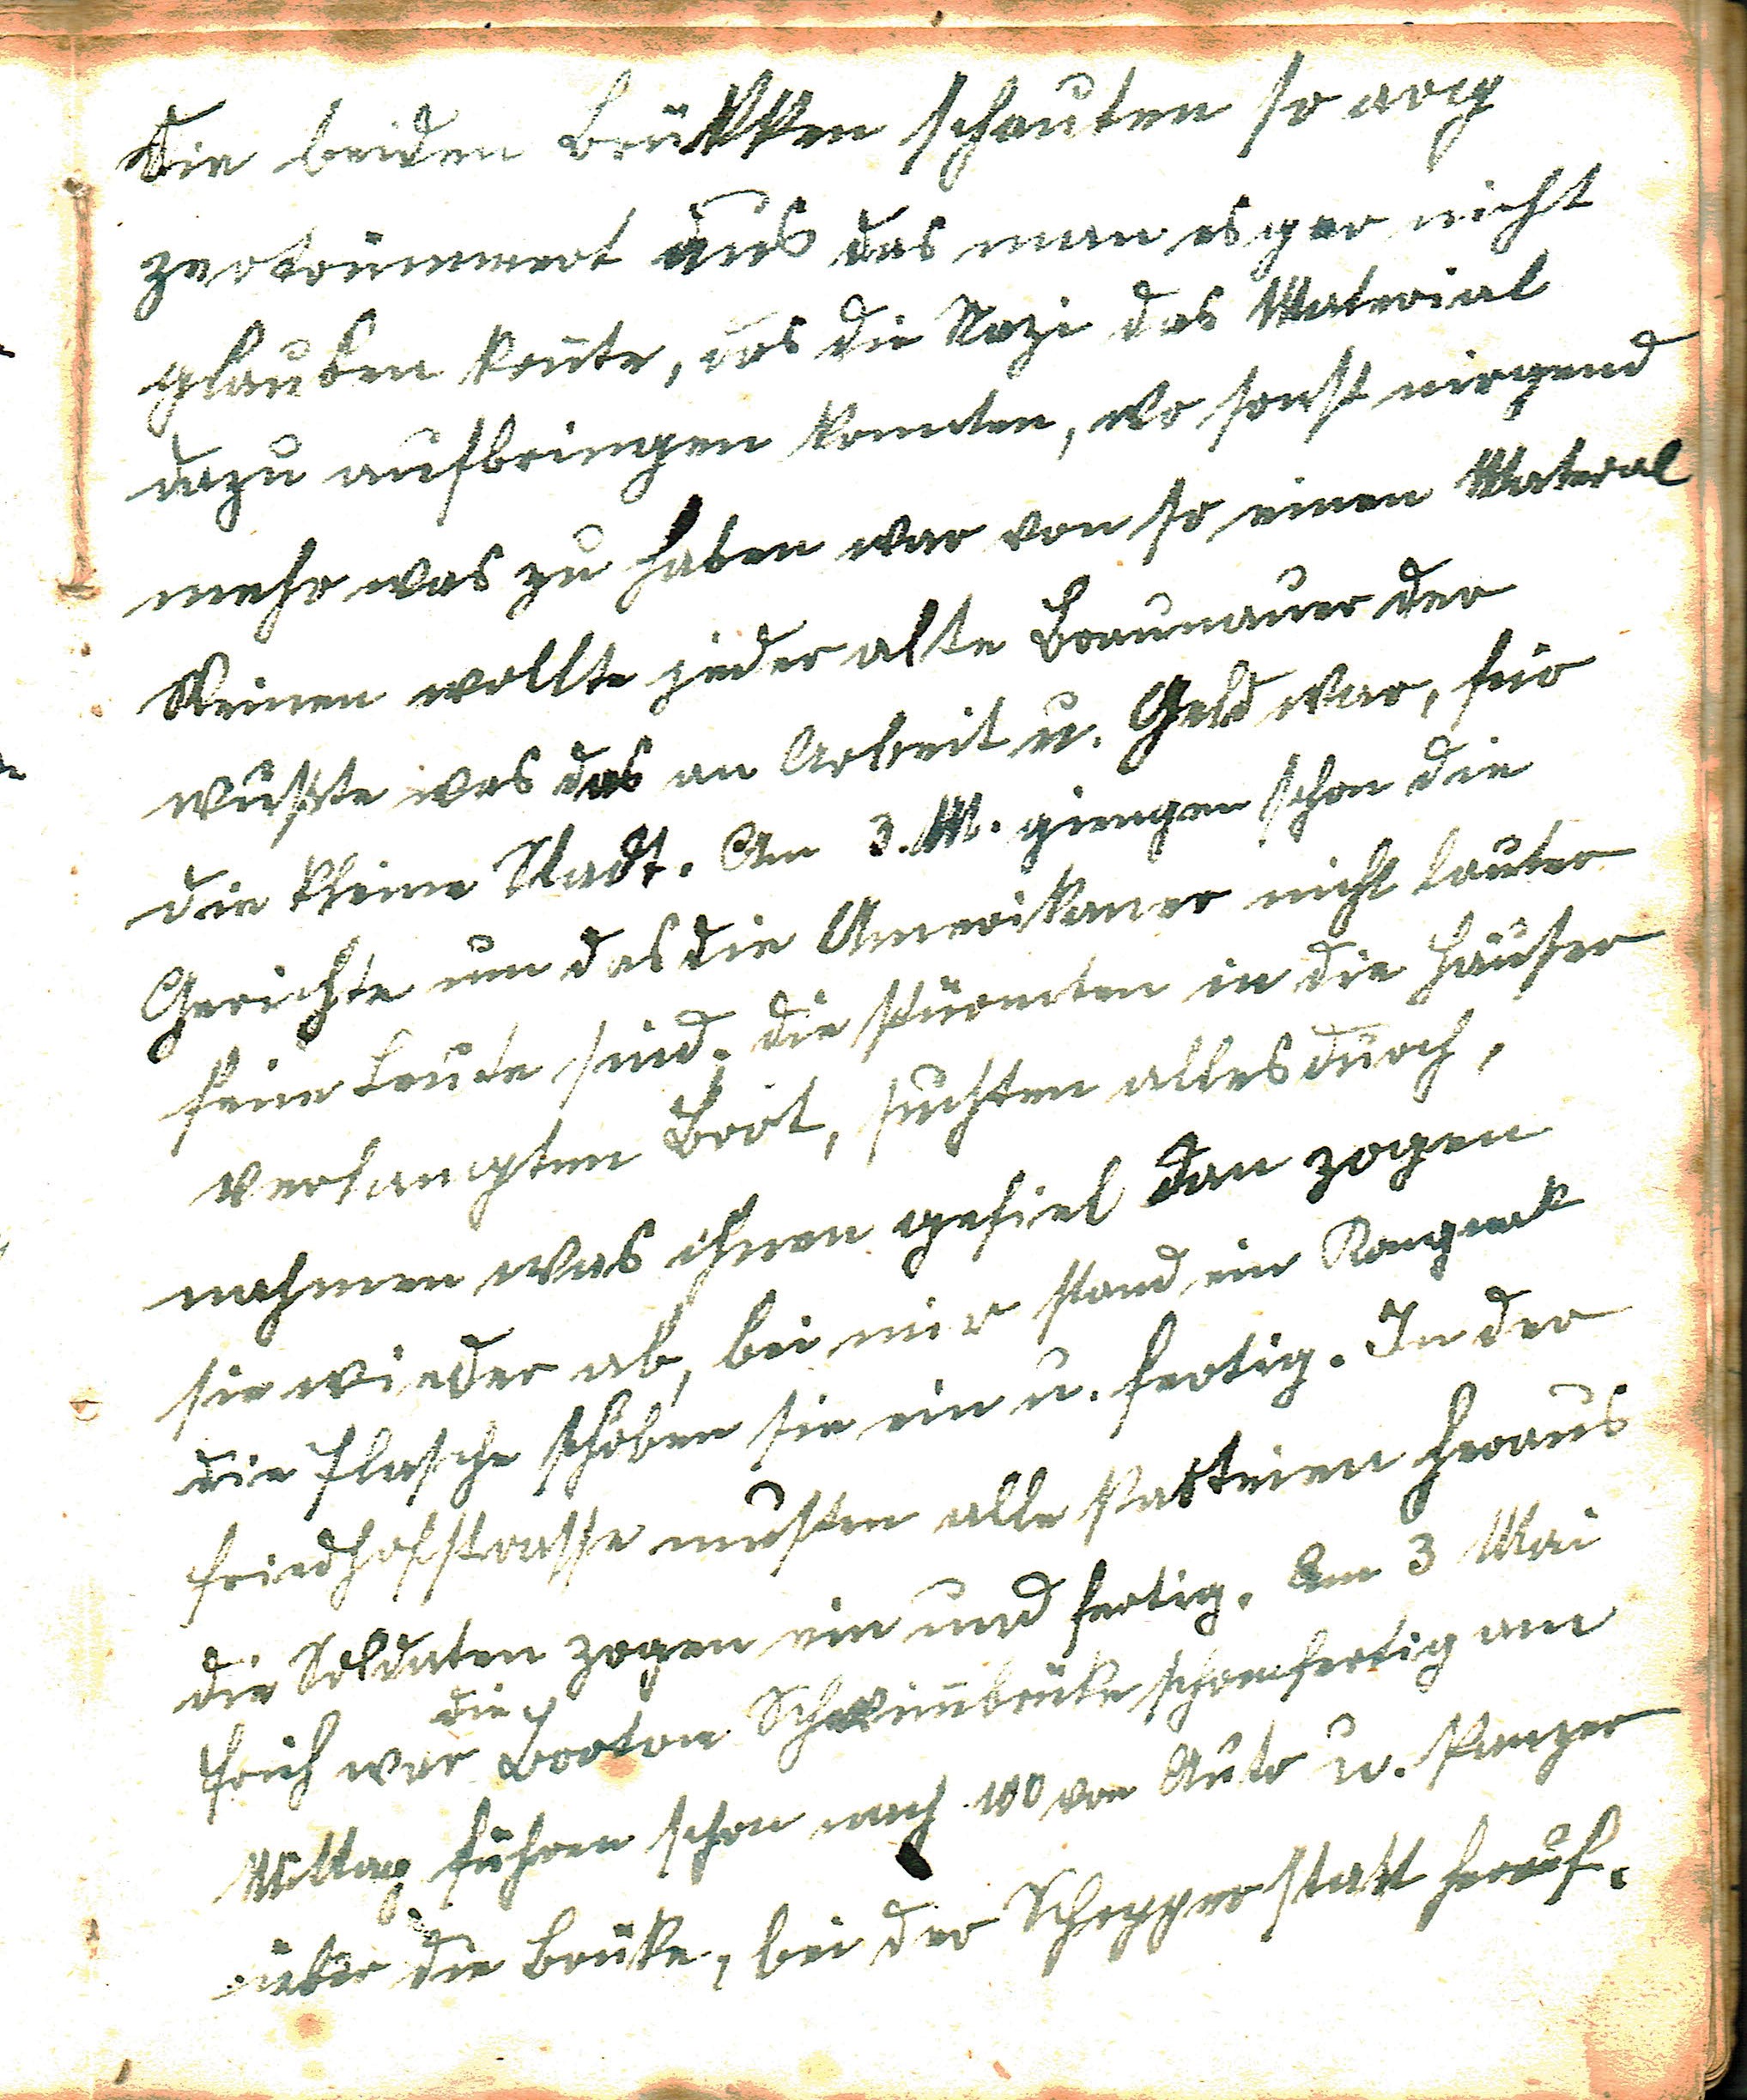 Die beiden Brükken schauten so arg
zertrümmert aus das man es gar nicht
glauben konte, das die Nazi das Material
dazu aufbringen konnten, wo sonst nirgend
mehr was zu haben war von so einen Materal
Weinen wollte jeder alte Braunauer der
wußte was das an Arbeit u. Geld war, für
die kleine Stadt. Am 3. M. giengen schon die
Gerichte um das die Amerikaner nicht lauter
feine Leute sind. die stürmten in die Häuser
verlangten Brot, suchten alles durch,
nahmen was ihnen gefiel dan zogen
sie wieder ab, bei mir stand ein
die Flasche schoben sie ein u. fertig. In der
Friedhofstrasse musten alle Parteien heraus
die Soldaten zogen ein und fertig. Am 3 Mai
früh war die Schwimbrüke schon fertig am
Mittag fuhren schon nach 100 von Auto u. Panzer
über die Brüke, bei der herauf.